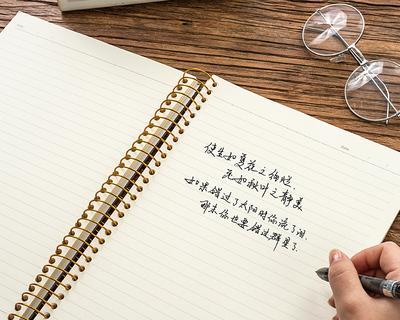 使生如夏花之绚烂，
死如秋叶之静美
如果错过了太阳时你流了泪
那末你也要错过群星了.